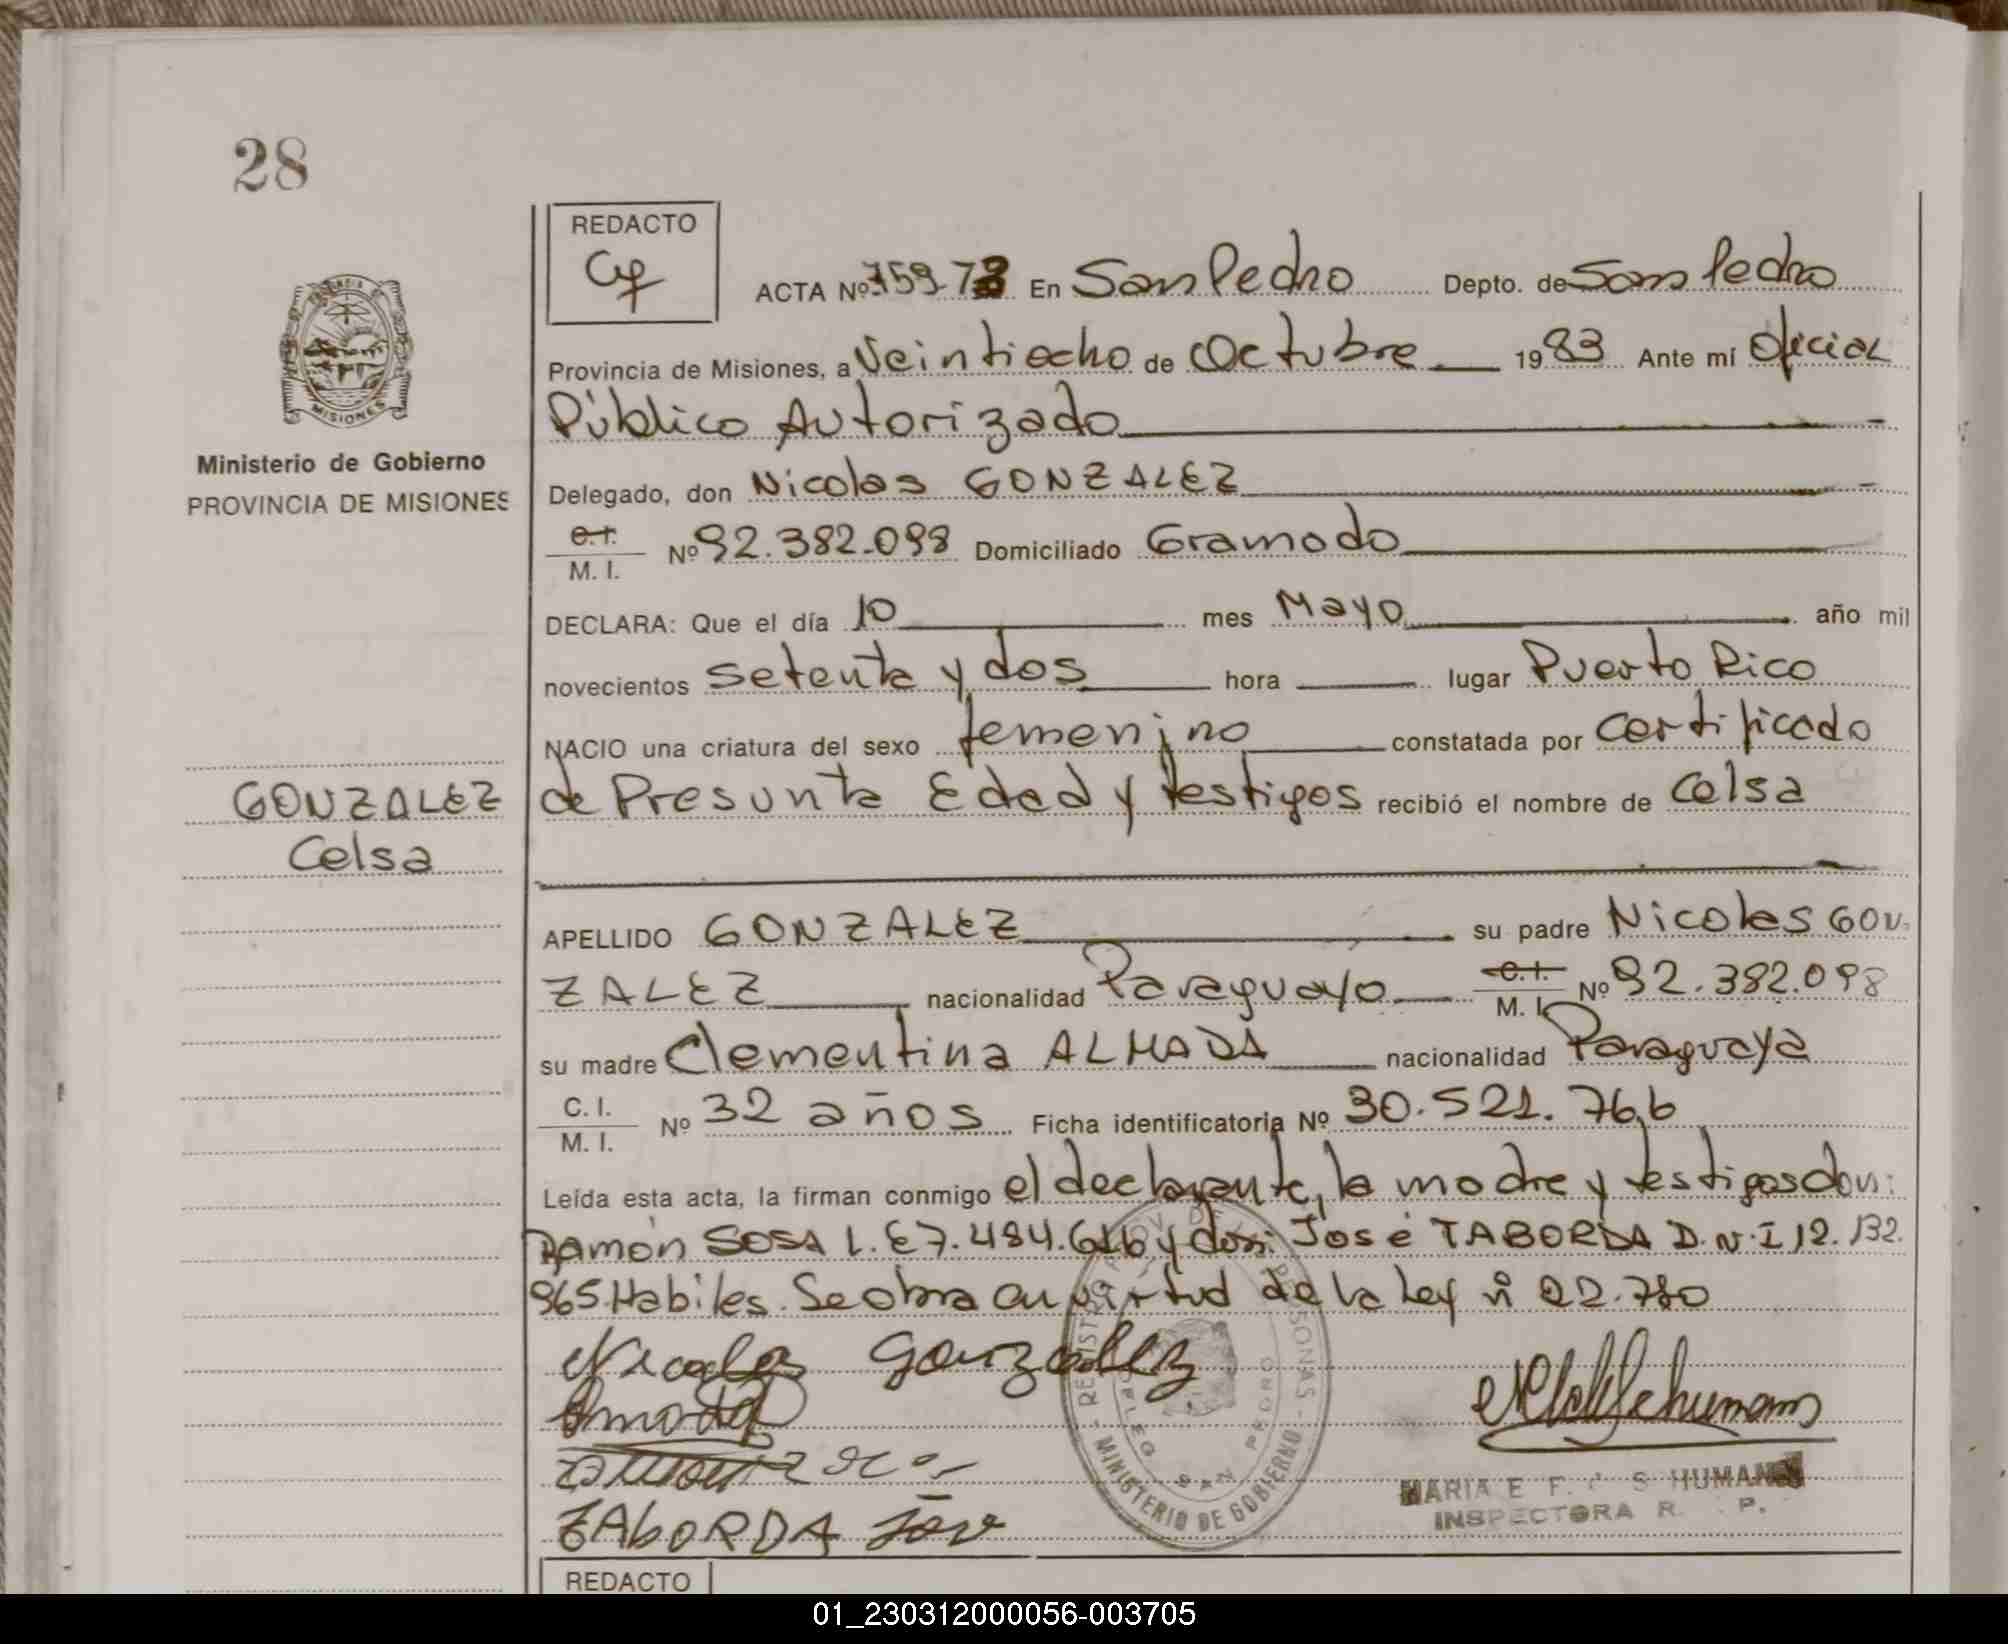 28
REDACTO
ACTA Nº 759-73 En San Pedro Depto. de San Pedro
Provincia de Misiones, a Veintiocho de Octubre 1983 Ante mí Oficial
Público Autorizado
MISIONES
Ministerio de Gobierno
PROVINCIA DE MISIONES
Delegado, don Nicolas GONZALEZ
C.I. M. I. Nº 92.382.098 Domiciliado Gramado
DECLARA: Que el día 10 mes Mayo año mil
novecientos setenta y dos hora lugar Puerto Rico
NACIO una criatura del sexo femenino constatada por certificado
de Presunta Edad y testigos recibió el nombre de Celsa
GONZALEZ
Celsa
APELLIDO GONZALEZ su padre Nicolas GON-
ZALEZ nacionalidad Paraguayo C.I. M. I. Nº 92.382.098
su madre Clementina ALMADA nacionalidad Paraguaya
C. I. M. I. Nº 32 años Ficha identificatoria Nº 30.521.766
Leída esta acta, la firman conmigo el declarante, la madre y testigos don:
Ramón SOSA L.E 7.484.616 y don: José TABORDA D.N.I 12.132.
965. Habiles. Se obra en virtud de la Ley nº 22.780
Nicolas Gonzalez
ZABORDA José
REGISTRO PROV. DE LAS PERSONAS - MINISTERIO DE GOBIERNO -
SAN PEDRO
MARIA E F. SHUMANN
INSPECTORA R. P.
REDACTO
01_230312000056-003705